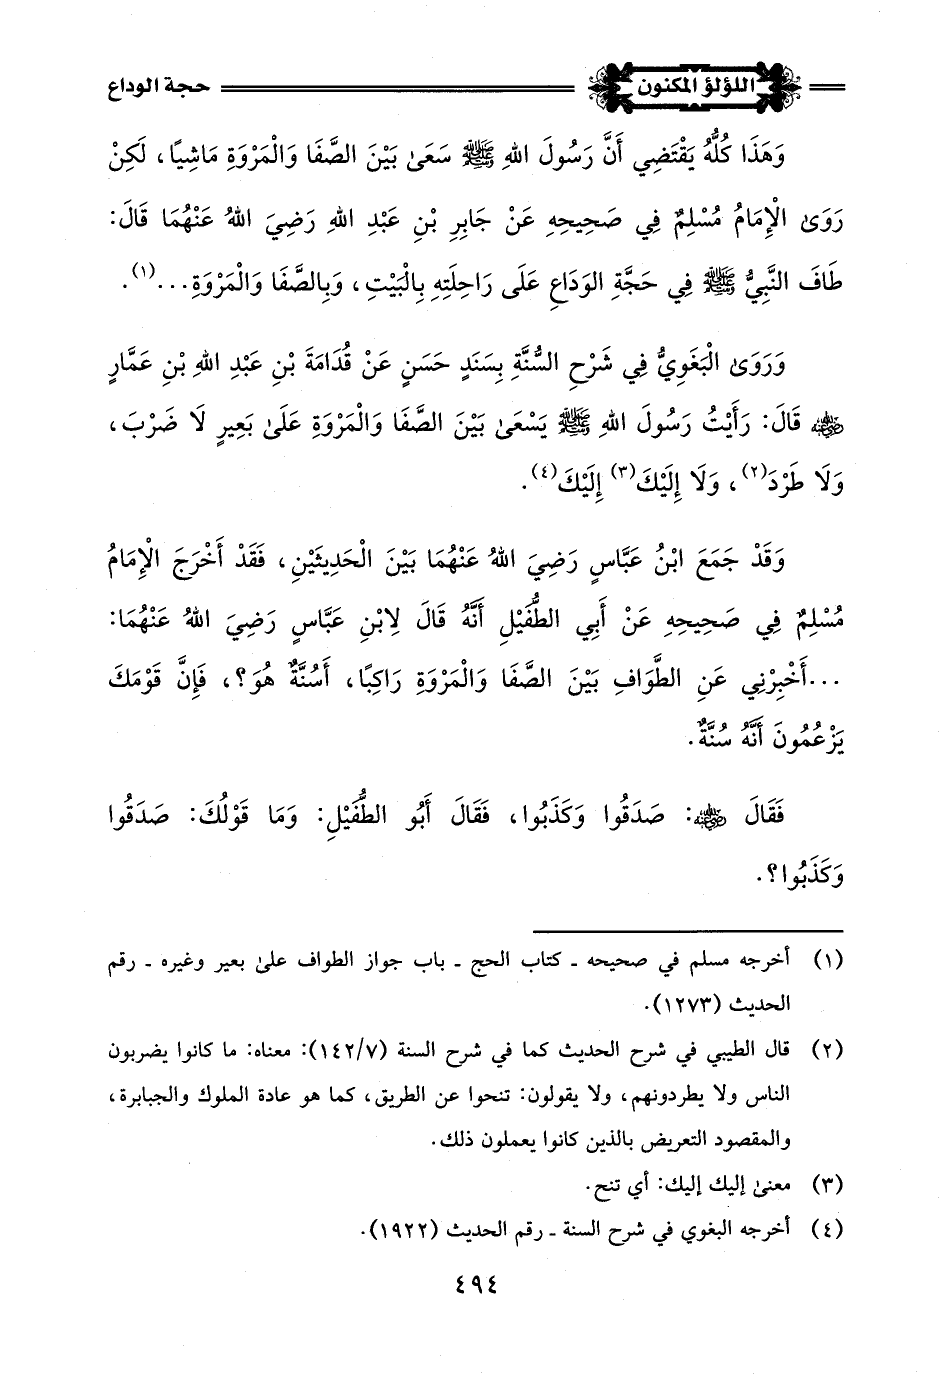 اللؤلؤ المكنون حجة الوداع
وَهَذَا كُلُّهُ يَقْتَضِي أَنَّ رَسُولَ اللهِ ﷺ سَعَىٰ بَيْنَ الصَّفَا وَالْمَرْوَةِ مَاشِيًا، لَكِنْ
رَوَىٰ الْإِمَامُ مُسْلِمٌ فِي صَحِيحِهِ عَنْ جَابِرِ بْنِ عَبْدِ اللهِ رَضِيَ اللهُ عَنْهُمَا قَالَ:
طَافَ النَّبِيُّ ﷺ فِي حَجَّةِ الوَدَاعِ عَلَى رَاحِلَتِهِ بِالْبَيْتِ، وَبِالصَّفَا وَالْمَرْوَةِ...(١).
وَرَوَىٰ الْبَغَوِيُّ فِي شَرْحِ السُّنَّةِ بِسَنَدٍ حَسَنٍ عَنْ قُدَامَةَ بْنِ عَبْدِ اللهِ بْنِ عَمَّارٍ
رضي الله عنه قَالَ: رَأَيْتُ رَسُولَ اللهِ ﷺ يَسْعَىٰ بَيْنَ الصَّفَا وَالْمَرْوَةِ عَلَىٰ بَعِيرٍ لَا ضَرْبَ،
وَلَا طَرْدَ(٢)، وَلَا إِلَيْكَ(٣) إِلَيْكَ(٤).
وَقَدْ جَمَعَ ابْنُ عَبَّاسٍ رَضِيَ اللهُ عَنْهُمَا بَيْنَ الْحَدِيثَيْنِ، فَقَدْ أَخْرَجَ الْإِمَامُ
مُسْلِمٌ فِي صَحِيحِهِ عَنْ أَبِي الطُّفَيْلِ أَنَّهُ قَالَ لِابْنِ عَبَّاسٍ رَضِيَ اللهُ عَنْهُمَا:
...أَخْبِرْنِي عَنِ الطَّوَافِ بَيْنَ الصَّفَا وَالْمَرْوَةِ رَاكِبًا، أَسُنَّةٌ هُوَ؟، فَإِنَّ قَوْمَكَ
يَزْعُمُونَ أَنَّهُ سُنَّةٌ.
فَقَالَ رضي الله عنه: صَدَقُوا وَكَذَبُوا، فَقَالَ أَبُو الطُّفَيْلِ: وَمَا قَوْلُكَ: صَدَقُوا
وَكَذَبُوا؟.
(١) أخرجه مسلم في صحيحه ـ كتاب الحج ـ باب جواز الطواف علىٰ بعير وغيره ـ رقم
الحديث (١٢٧٣).
(٢) قال الطيبي في شرح الحديث كما في شرح السنة (١٤٢/٧): معناه: ما كانوا يضربون
الناس ولا يطردونهم، ولا يقولون: تنحوا عن الطريق، كما هو عادة الملوك والجبابرة،
والمقصود التعريض بالذين كانوا يعملون ذلك.
(٣) معنىٰ إليك إليك: أي تنح.
(٤) أخرجه البغوي في شرح السنة ـ رقم الحديث (١٩٢٢).
٤٩٤